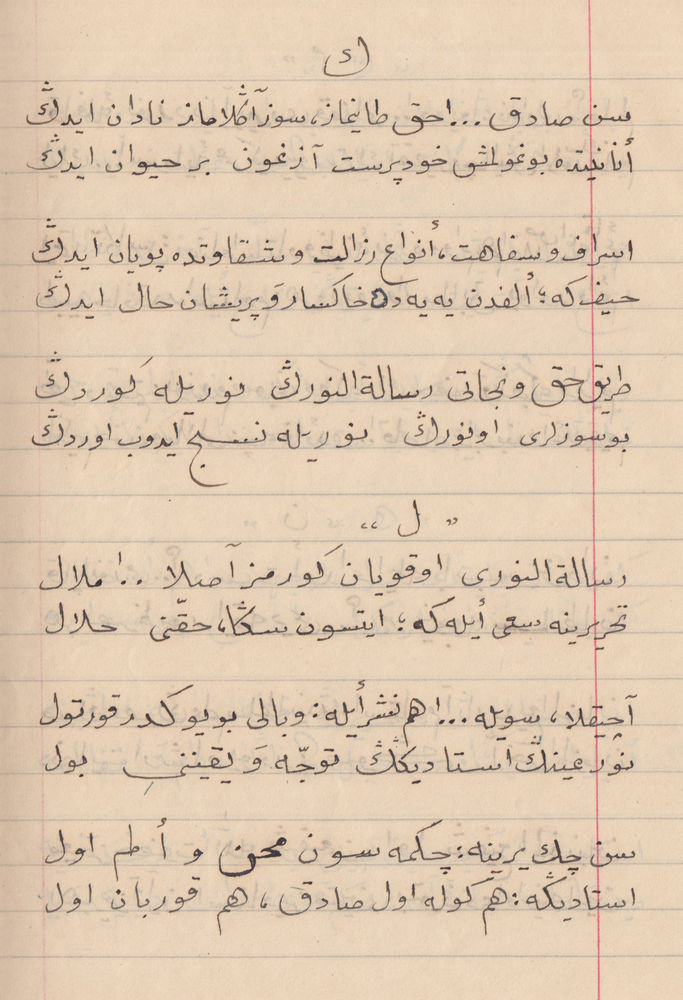 ك
سن صادق ... احق طانیماز، سوز آڭلاماز نادان ایدڭ
أنانیتده بوغولمش خودپرست آزغون بر حیوان ایدڭ
اسراف و سفاهت، أنواع رزالت و شقاوتده پویان ایدڭ
حیف که؛ ألفدن یه یه ده خاکسار و پریشان حال ایدڭ
طریق حق و نجاتی رسالة النورڭ نوریله کوردڭ
بو سوزلری او نورڭ نوریله نسج ایدوب اوردڭ
" ل "
رسالة النوری اوقویان کورمز آصلا ..! ملال
تحریرینه سعی أیله که؛ ایتسون سڭا، حقّنی حلال
آچیقلا، سویله ...! هم نشر أیله: وبالی بویوکدر قورتول
نور عینڭ استادیڭڭ توجّه وَ یقیننی بول
سن چك یرینه: چکمه سون محن و أ لم اول
استادیڭه: هم کوله اول صادق، هم قوربان اول